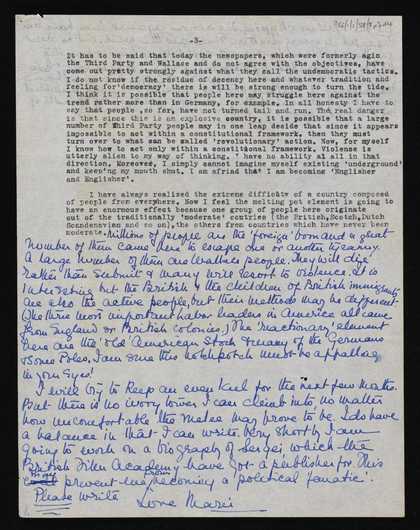 -3-
It has to be said that today the newspapers, which were formerly agin
the Third Party and Wallace and do not agree with the objectives, have
come out pretty strongly against what they call the undemocratic tactics.
I do not know if the residue of decency here and whatever tradition and
feeling for 'democracy' there is will be strong enough to turn the tide.
I think it is possible that people here may struggle here against the
trend rather more than in Germany, for example. In all honesty I have to
say that people, so far, have not turned tail and run. The real danger
is that since this is an explosive country, it is possible that a large
number of Third Party people may in one leap decide that since it appears
impossible to act within a constitutional framework, then they must
turn over to what can be called 'revolutionary' action. Now, for myself
I know how to act only within a constitutional framework. Violence is
utterly alien to my way of thinking. I have no ability at all in that
direction. Moreover, I simply cannot imagine myself existing 'underground'
and keeping my mouth shut. I am afriad that I am becoming 'Englisher
and Englisher'.
I have always realized the extreme difficulty of a country composed
of people from everywhere. Now I feel the melting pot element is going to
have an enormous effect because one group of people here originate
out of the traditionally 'moderate' contries (the British, Scotch, Dutch
Scandenavian and so on), the others from countries which have never been
moderate. Millions of people are the 'foreign' born and a great
number of them came here to escape one or another tyranny.
A large number of them are Wallace people. They will die
rather than submit & many will resort to violence. It is
interesting but the British & the children of British immigrants
are also the active people, but their methods may be different.
(The three most important labor leaders in America all came
from England or British colonies.) The 'reactionary' element
here are the 'old' American stock & many of the Germans
& some Poles. I am sure this hotchpotch must be appalling
in your eyes!
I will try to keep an even keel for the next few months.
But there is no ivory tower I can climb into no matter
how uncomfortable the melee may prove to be. I do have
a balance in that I can write. Very shortly I am
going to work on a biography of Sergei which the
British Film Academy have got a publisher for. This
may prevent me from becoming a 'political fanatic'.
Please write
Love Marie